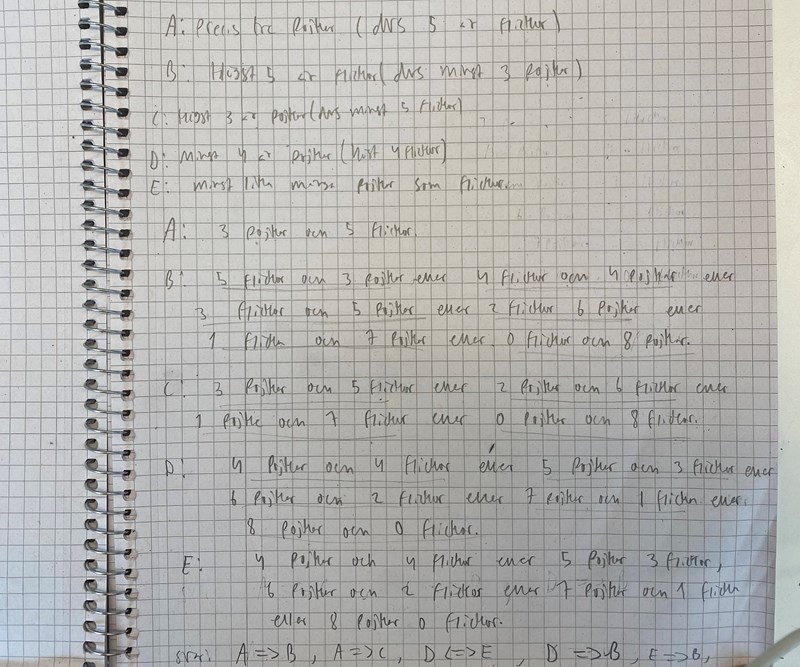 A: Precis tre pojkar (dvs 5 är flickor)
B: Högst 5 är flickor (dvs minst 3 pojkar)
C: Högst 3 är pojkar (dvs minst 5 flickor)
D: Minst 4 är pojkar (höst 4 flickor)
E: minst lika många pojkar som flickor.
A: 3 pojkar och 5 flickor.
B: 5 flickor och 3 pojkar eller 4 flickor och 4 pojkar eller
3 flickor och 5 pojkar eller 2 flickor 6 pojkar eller
1 flicka och 7 pojkar eller 0 flickor och 8 pojkar.
C: 3 pojkar och 5 flickor eller 2 pojkar och 6 flickor eller
1 pojke och 7 flickor eller 0 pojkar och 8 flickor.
D: 4 pojkar och 4 flickor eller 5 pojkar och 3 flickor eller
6 pojkar och 2 flickor eller 7 pojkar och 1 flicka eller
8 pojkar och 0 flickor.
E: 4 pojkar och 4 flickor eller 5 pojkar 3 flickor,
6 pojkar och 2 flickor eller 7 pojkar och 1 flicka
eller 8 pojkar 0 flickor.
svar: A => B, A => C, D <=> E, D => B, E => B,